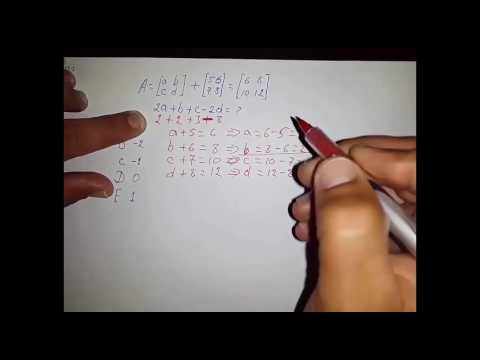 A = [a b c d] + [5 6 7 8] = [6 8 10 12]
2a + b + c - 2d = ?
2 + 2 + 3 - 8
a + 5 = 6 ⇒ a = 6 - 5 =
b + 6 = 8 ⇒ b = 8 - 6 = 2
-2
c + 7 = 10 ⇒ c = 10 - 7
C -1
d + 8 = 12 ⇒ d = 12 - 8
D 0
E 1